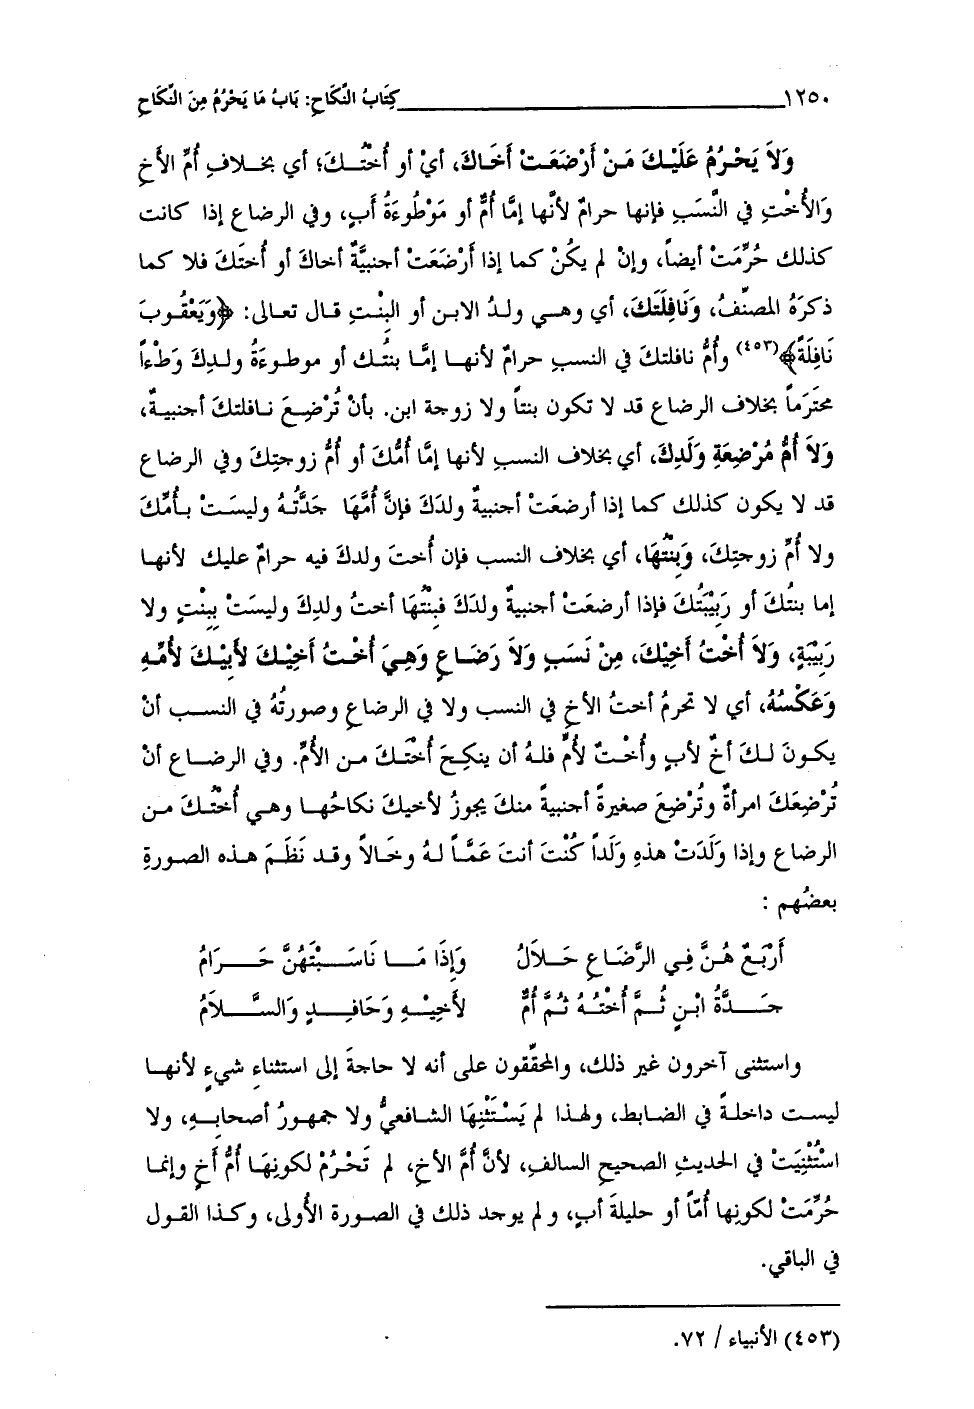 ١٢٥٠ كِتَابُ النِّكَاحِ: بَابُ مَا يَحْرُمُ مِنَ النِّكَاحِ
وَلاَ يَحْرُمُ عَلَيْكَ مَنْ أَرْضَعَتْ أَخَاكَ، أيْ أو أُخْتُـكَ؛ أي بخـلافِ أُمِّ الأخِ
وَالأُخْتِ في النَّسَبِ فإنها حرامٌ لأنَّها إمَّا أُمٌّ أو مَوْطُوءَةُ أَبٍ، وفي الرضاع إذا كانت
كذلك حُرِّمَتْ أيضاً، وإنْ لم يكُنْ كما إذا أَرْضَعَتْ أجنبيَّةٌ أخاكَ أو أُختَكَ فلا كما
ذكرَهُ المصنِّفُ، وَنَافِلَتَكَ، أي وهـي ولدُ الابن أو البِنْتِ قـال تعـالى: ﴿وَيَعْقُـوبَ
نَافِلَةً﴾(٤٥٣) وأُمُّ نافلتكَ في النسبِ حرامٌ لأنهـا إمَّا بنتُـك أو موطـوءَةُ ولـدِكَ وَطْءاً
محترَماً بخلاف الرضاع قد لا تكون بنتاً ولا زوجة ابن. بأنْ تُرْضِـعَ نـافلتكَ أجنبيـة،
وَلاَ أُمُّ مُرْضِعَةِ وَلَدِكَ، أي بخلاف النسبِ لأنها إمَّا أُمُّكَ أو أُمُّ زوجتِكَ وفي الرضاع
قد لا يكون كذلك كما إذا أرضعَتْ أجنبيةٌ ولدَكَ فإنَّ أُمَّهَا جَدَّتُـهُ وليسَـتْ بـأُمِّكَ
ولا أُمِّ زوجتِكَ، وَبِنْتُهَا، أي بخلاف النسب فإن أُختَ ولدكَ فيه حرامٌ عليك لأنهـا
إما بنتُكَ أو رَبِيْبَتُكَ فإذا أرضعَتْ أجنبيةٌ ولدَكَ فبنْتُهَا أختُ ولدِكَ وليسَتْ ببنْتٍ ولا
رَبِيْبَةٍ، وَلاَ أُخْتُ أَخِيْكَ، مِنْ نَسَبٍ وَلاَ رَضَـاعٍ وَهِيَ أُخْـتُ أَخِيْـكَ لأَبِيْـكَ لأُمِّـهِ
وَعَكْسُهُ، أي لا تحرمُ أختُ الأخِ في النسب ولا في الرضاعِ وصورتُهُ في النسـب أنْ
يكـونَ لـكَ أخٌ لأبٍ وأُخـتٌ لأمٍّ فلهُ أن ينكِـحَ أُختَـكَ مـن الأُمِّ. وفي الرضـاع أنْ
تُرْضِعَكَ امرأةٌ وتُرْضِعَ صغيرةً أجنبيةً منكَ يجوزُ لأخيكَ نكاحُهـا وهـي أُختُـكَ مـن
الرضاع وإذا وَلَدَتْ هذهِ ولَداً كُنْتَ أنتَ عَمّـاً لـهُ وخـالاً وقـد نَظَمَ هـذه الصـورةِ
بعضُهم :
أَرْبَعٌ هُنَّ فِي الرَّضَـاعِ حَـلاَلُ وَإِذَا مَـا نَاسَـبْتَهُنَّ حَـرَامُ
جَـدَّةُ ابْنٍ ثُـمَّ أُخْتُـهُ ثُمَّ أُمٌّ لأَخِيْـهِ وَحَافِـدٍ وَالسَّـلاَمُ
واستثنى آخرون غير ذلك، والمحقّقون على أنه لا حاجةَ إلى استثناءِ شيءٍ لأنهـا
ليست داخلةً في الضابط، ولهذا لم يَسْتَثْنِهَا الشافعيُّ ولا جمهورُ أصحابِـهِ، ولا
اسْتُثْنِيَتْ في الحديثِ الصحيحِ السالفِ، لأنَّ أُمَّ الأخِ، لم تَحْرُمْ لكونِهَا أُمُّ أَخٍ وإنما
حُرِّمَتْ لكونِها أُمّاً أو حليلةَ أبٍ، ولم يوجد ذلك في الصورة الأُولى، وكـذا القـول
في الباقي.
(٤٥٣) الأنبياء / ٧٢.